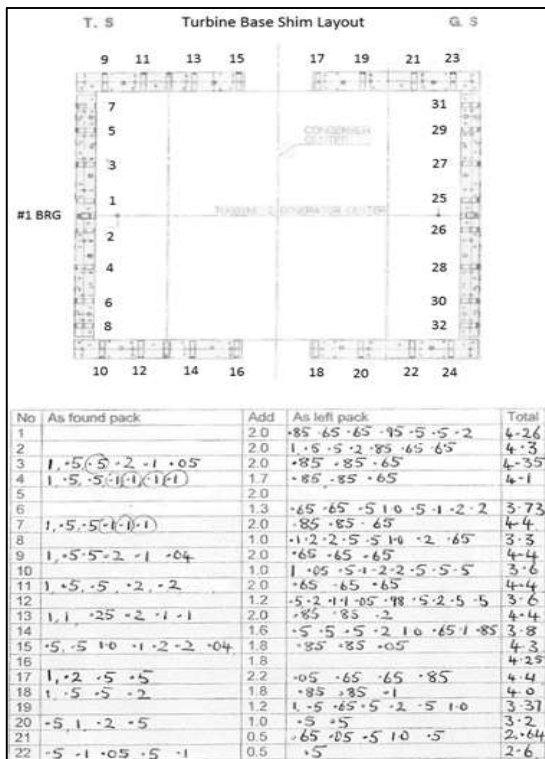 T. S Turbine Base Shim Layout G. S
9 11 13 15 17 19 21 23
7 31
5 29
CONDENSER
CENTER
3 27
1 25
#1 BRG TURBINE & GENERATOR CENTER
2 26
4 28
6 30
8 32
10 12 14 16 18 20 22 24
No As found pack Add As left pack Total
1 2.0 .85 .65 .65 .95 .5 .5 .2 4.26
2 2.0 1, .5 .5 .2 .85 .65 .65 4.3
3 1, .5 .5 .2 .1 .05 2.0 .85 .85 .65 4.35
4 1, .5, .5 .1 .1 .1 .1 1.7 .85, .85 .65 4.1
5 2.0
6 1.3 .65 .65 .5 1.0 .5 .1 .2 .2 3.73
7 1, .5, .5 .1 .1 .1 2.0 .85 .85 .65 4.4
8 1.0 .1 .2 .2 .5 .5 1.0 .2 .65 3.3
9 1, .5 .5 .2 .1 .04 2.0 .65 .65 .65 4.4
10 1.0 1 .05 .5 .1 .2 .2 .5 .5 .5 3.6
11 1, .5, .5, .2, .2 2.0 .65 .65 .65 4.4
12 1.2 .5 .2 .1 .1 .05 .98 .5 .2 .5 .5 3.6
13 1, 1 .25 .2 .1 .1 2.0 .85 .85 .2 4.4
14 1.6 .5 .5 .5 .2 1.0 .65 .1 .85 3.8
15 .5, .5 1.0 .1 .2 .2 .04 1.8 .85 .85 .05 4.3
16 1.8 4.25
17 1, .2 .5 .5 2.2 .05 .65 .65 .85 4.4
18 1, .5 .5 .2 1.8 .85 .85 .1 4.0
19 1.2 1, .5 .65 .5 .2 .5 1.0 3.37
20 .5, 1, .2 .5 1.0 .5 .5 3.2
21 0.5 .65 .05 .5 1.0 .5 2.64
22 .5 .1 .05 .5 .1 0.5 .5 2.6